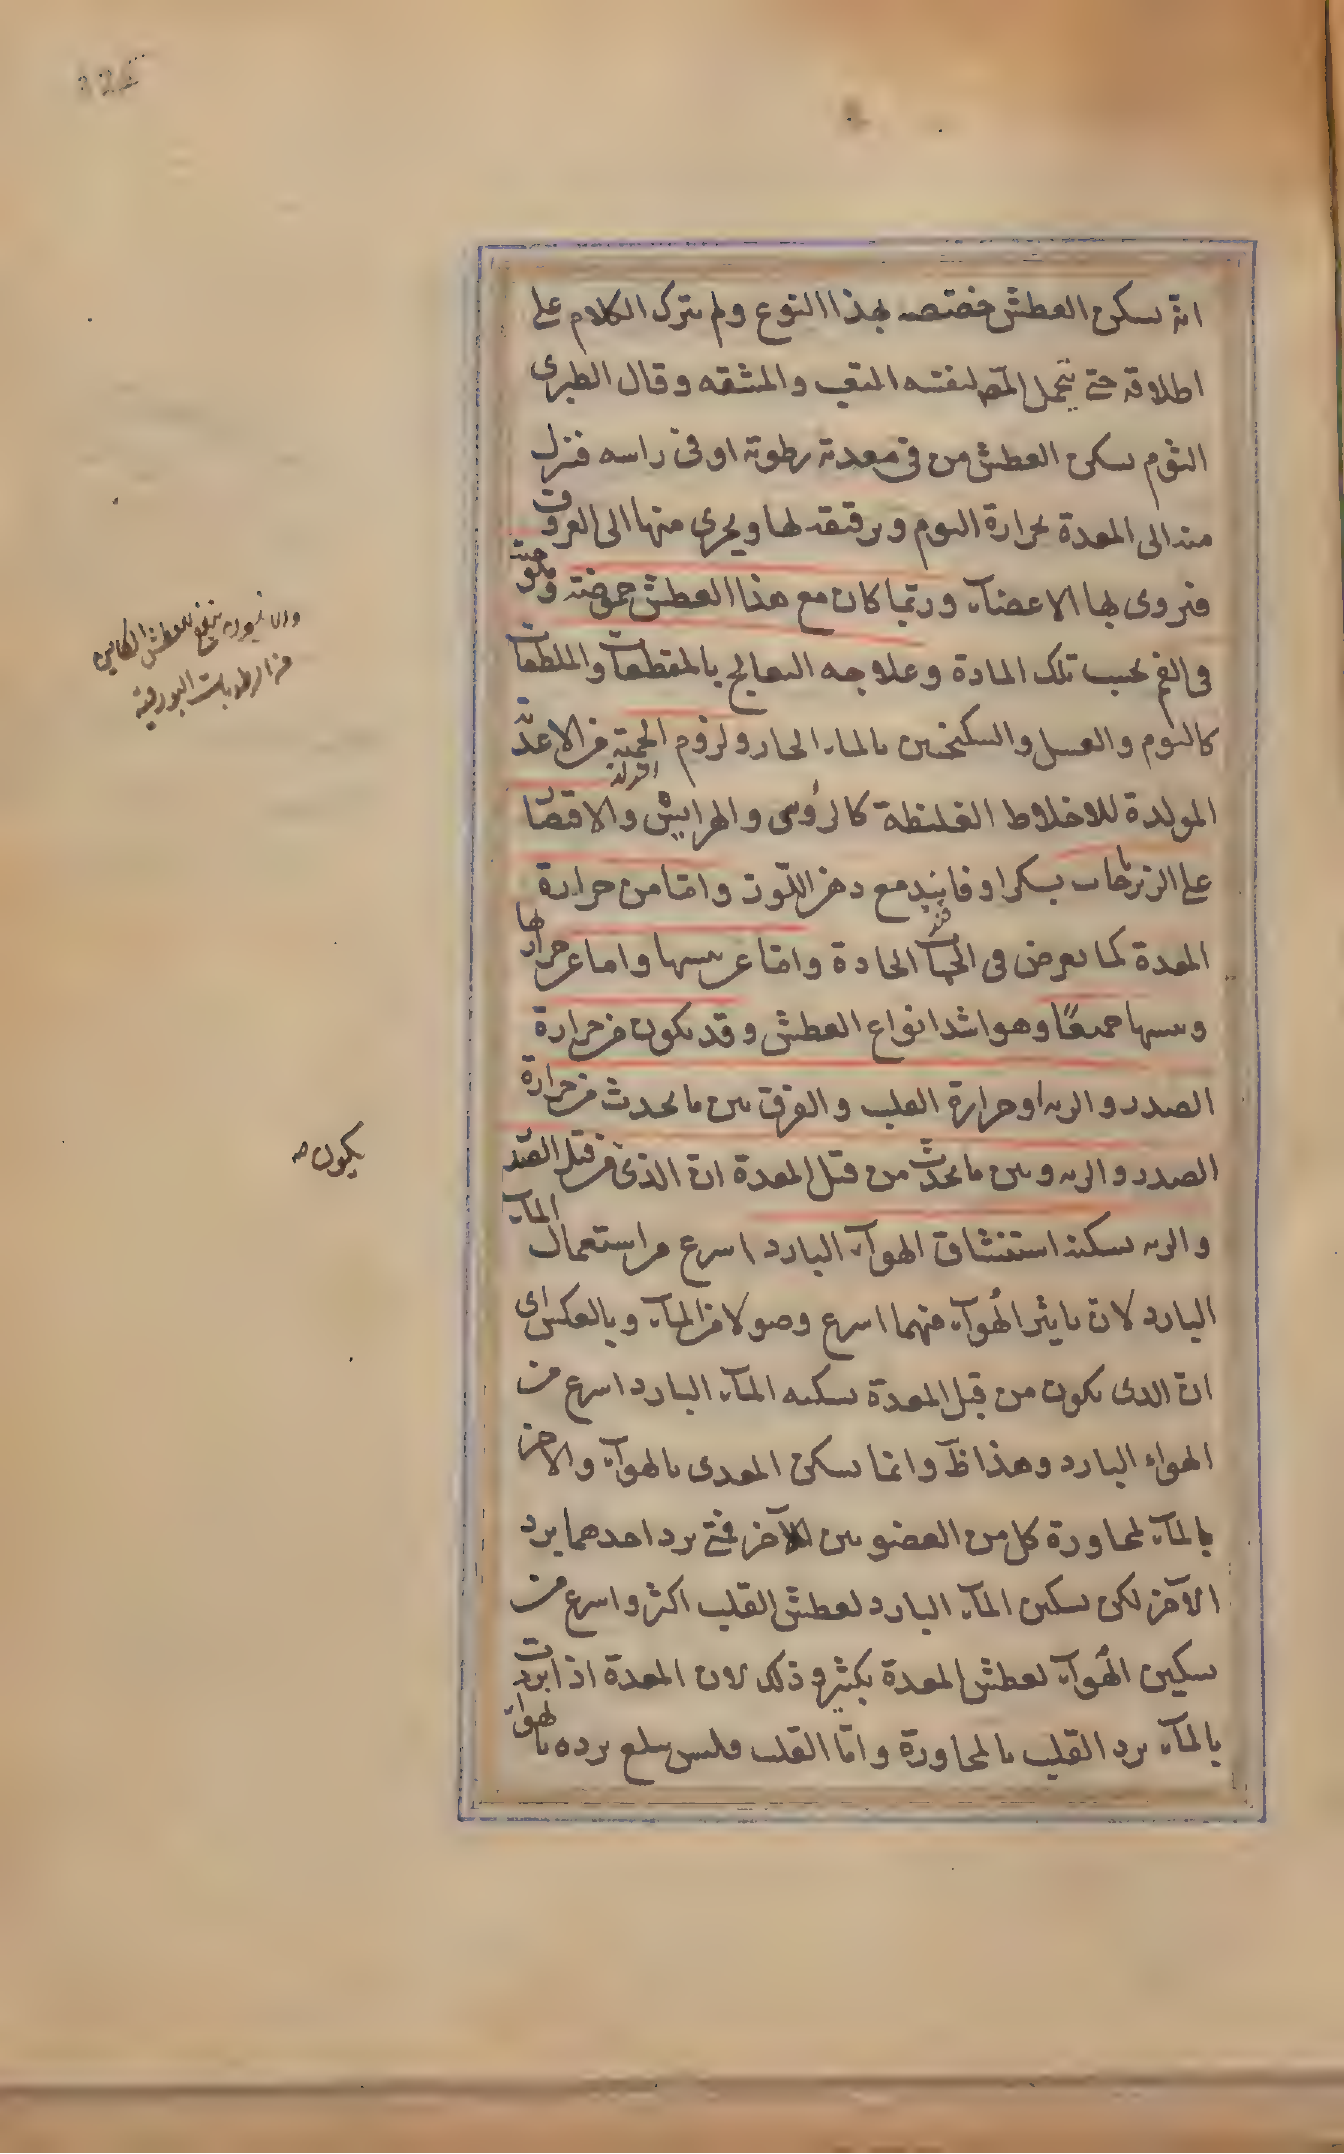 انه يسكن العطش خصّصه بهذا النوع ولم يترك الكلام على
اطلاقه حتى يتحمل المصّ لنفسه التعب والمشقه وقال الطبرى
الثوم يسكن العطش من فى معدته رطوبة او فى راسه فتنزل
منه الى المعدة بحرارة الثوم وترقيقه لها ويجرى منها الى العروق
فتروى بها الاعضآء وربّما كان مع هذا العطش حموضة وملوحة
فى الفم بحسب تلك المادة وعلاجه التعالج بالمقطعات والملطفات
كالثوم والعسل والسكنجبين بالمآء الحار ولزوم الحمية من الاغذية
المولدة للاخلاط الغليظة كالرؤس والهرايس والاقتصار
على الزيرباجات بسكر او فانيد مع دهن اللّوز وامّا من حرارة
المعدة كما يعرض فى الحميات الحادة وامّا عن يبسها واما عن حرارتها
ويبسها جميعًا وهو اشد انواع العطش وقد يكون من حرارة
الصدر والريه او حرارة القلب والفرق بين ما يحدث من حرارة
الصدر والريه وبين ما يحدث من قبل المعدة انّ الذى من قبل الصدر
والريه يسكنه استنشاق الهوآء البارد اسرع من استعمال المآء
البارد لانّ تاثير الهوآء منهما اسرع وصولا من المآء وبالعكس اى
انّ الذى يكون من قبل المعدة يسكنه المآء البارد اسرع من
الهواء البارد وهذا ظ وانما يسكن المعدى بالهوآء والاخر
بالمآء لمجاورة كل من العضوين للآخر فمتى برد احدهما برد
الآخر لكن تسكين المآء البارد لعطش القلب اكثر واسرع من
تسكين الهوآء لعطش المعدة بكثير وذلك لان المعدة اذا بردت
بالمآء برد القلب بالمجاورة وامّا القلب فليس يبلغ برده بالهوآء
ينفع للعطش الكاين
من الرطوبات البورقية
يكون صه